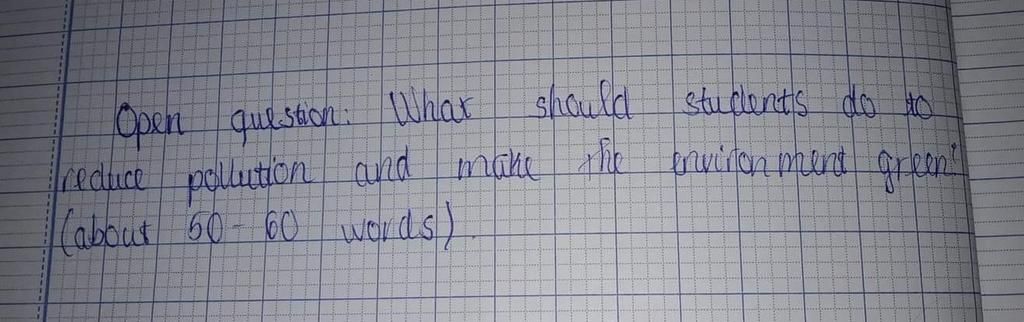 Open question: What should students do to
reduce pollution and make the environment green?
(about 50-60 words).